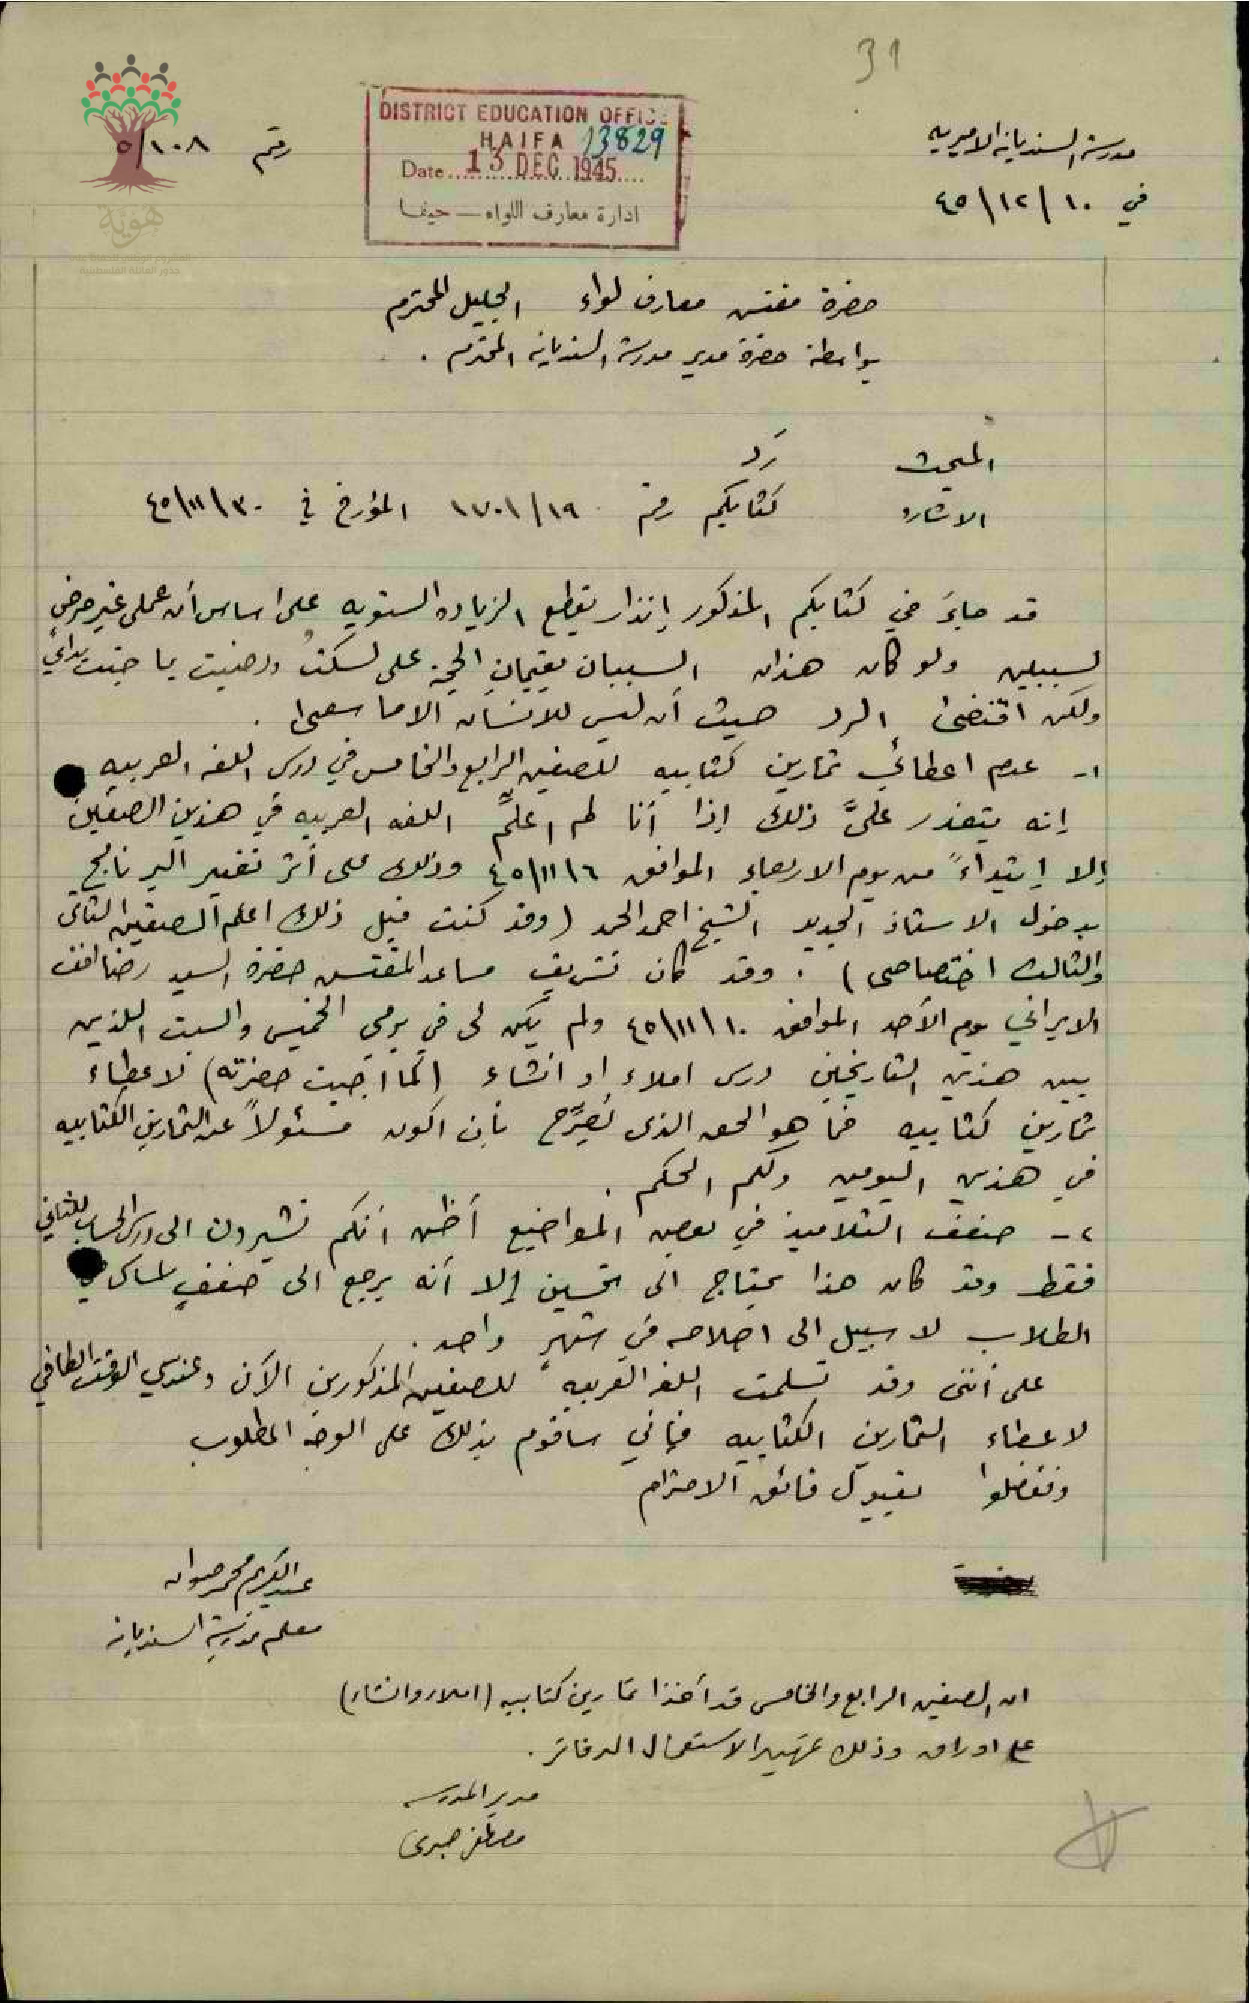 31
مدرسة السنديانة الاميريه
في ١٠/١٢/٤٥
رقم ٥/١٠٨
DISTRICT EDUCATION OFFICE
HAIFA 13829
Date 13 DEC 1945
ادارة معارف اللواء — حيفا
هوية
حضرة مفتش معارف لواء الجليل المحترم
بواسطة حضرة مدير مدرسة السنديانة المحترم .
المبحث رَد
الاشاره كتابكم رقم ١٧٠١/١٩ المؤرخ في ٣٠/١١/٤٥
قد جاءَ في كتابكم المذكور إنذار بقطع الزياده السنويه على اساس أن عملي غير مرضٍ
لسببين ولو كان هذان السببان يقيمان الحجة علي لسكتُ ورضيت بما جنت يداي
ولكن اقتضى الرد حيث أن ليس للانسان الا ما سعى .
١- عدم اعطائي تمارين كتابيه للصفين الرابع والخامس في درس اللغه العربيه
إنه يتعذر عليَّ ذلك إذا أنا لم اعلِّم اللغه العربيه في هذين الصفين
إلا إبتداءً من يوم الاربعاء الموافق ٦/١١/٤٥ وذلك على أثر تغيير البرنامج
بدخول الاستاذ الجديد الشيخ احمد الحمد (وقد كنت قبل ذلك اعلم الصفين الثاني
والثالث اختصاصي) . وقد كان تشريف مساعد المفتش حضرة السيد رضا افندي
الايراني يوم الأحد الموافق ١٠/١١/٤٥ ولم يكن لي في يومي الخميس والسبت اللذين
بين هذين التاريخين درس املاء او انشاء (كما اجبت حضرته) لاعطاء
تمارين كتابيه فما هو الحق الذي يُصَرِّح بأن اكون مسئولاً عن التمارين الكتابيه
في هذين اليومين ولكم الحكم .
٢- ضعف التلاميذ في بعض المواضيع أظن أنكم تشيرون الى درس الحساب للثاني
فقط وقد كان هذا يحتاج الى تحسين إلا أنه يرجع الى ضعفٍ في
الطلاب لا سبيل الى اصلاحه في شهرٍ واحد .
على أنني وقد تسلمت اللغه العربيه للصفين المذكورين الآن وعندي الوقت الكافي
لاعطاء التمارين الكتابيه فإني سأقوم بذلك على الوجه المطلوب
وتفضلوا بقبول فائق الاحترام
عبد الكريم محمد
معلم مدرسة السنديانة
ان الصفين الرابع والخامس قد أخذا تمارين كتابيه (املاء وانشاء)
على اوراق وذلك تمهيدا لاستعمال الدفاتر .
مدير المدرسه
مصطفى صبري